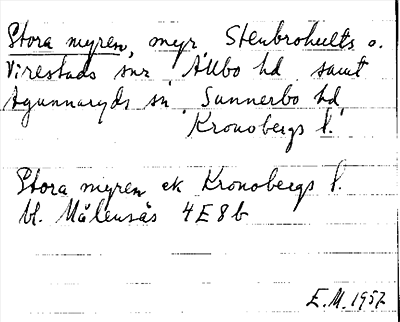 Stora myren, myr, Stenbrohults o.
Virestads snr Allbo hd samt
Agunnaryds sn Sunnerbo hd
Kronobergs l.
Stora myren ek Kronobergs l.
bl. Målensås 4E8b
E.M. 1957